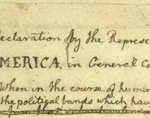 eclaration by the Represe
MERICA, in General Co
hen in the course of human
the political bands which hav